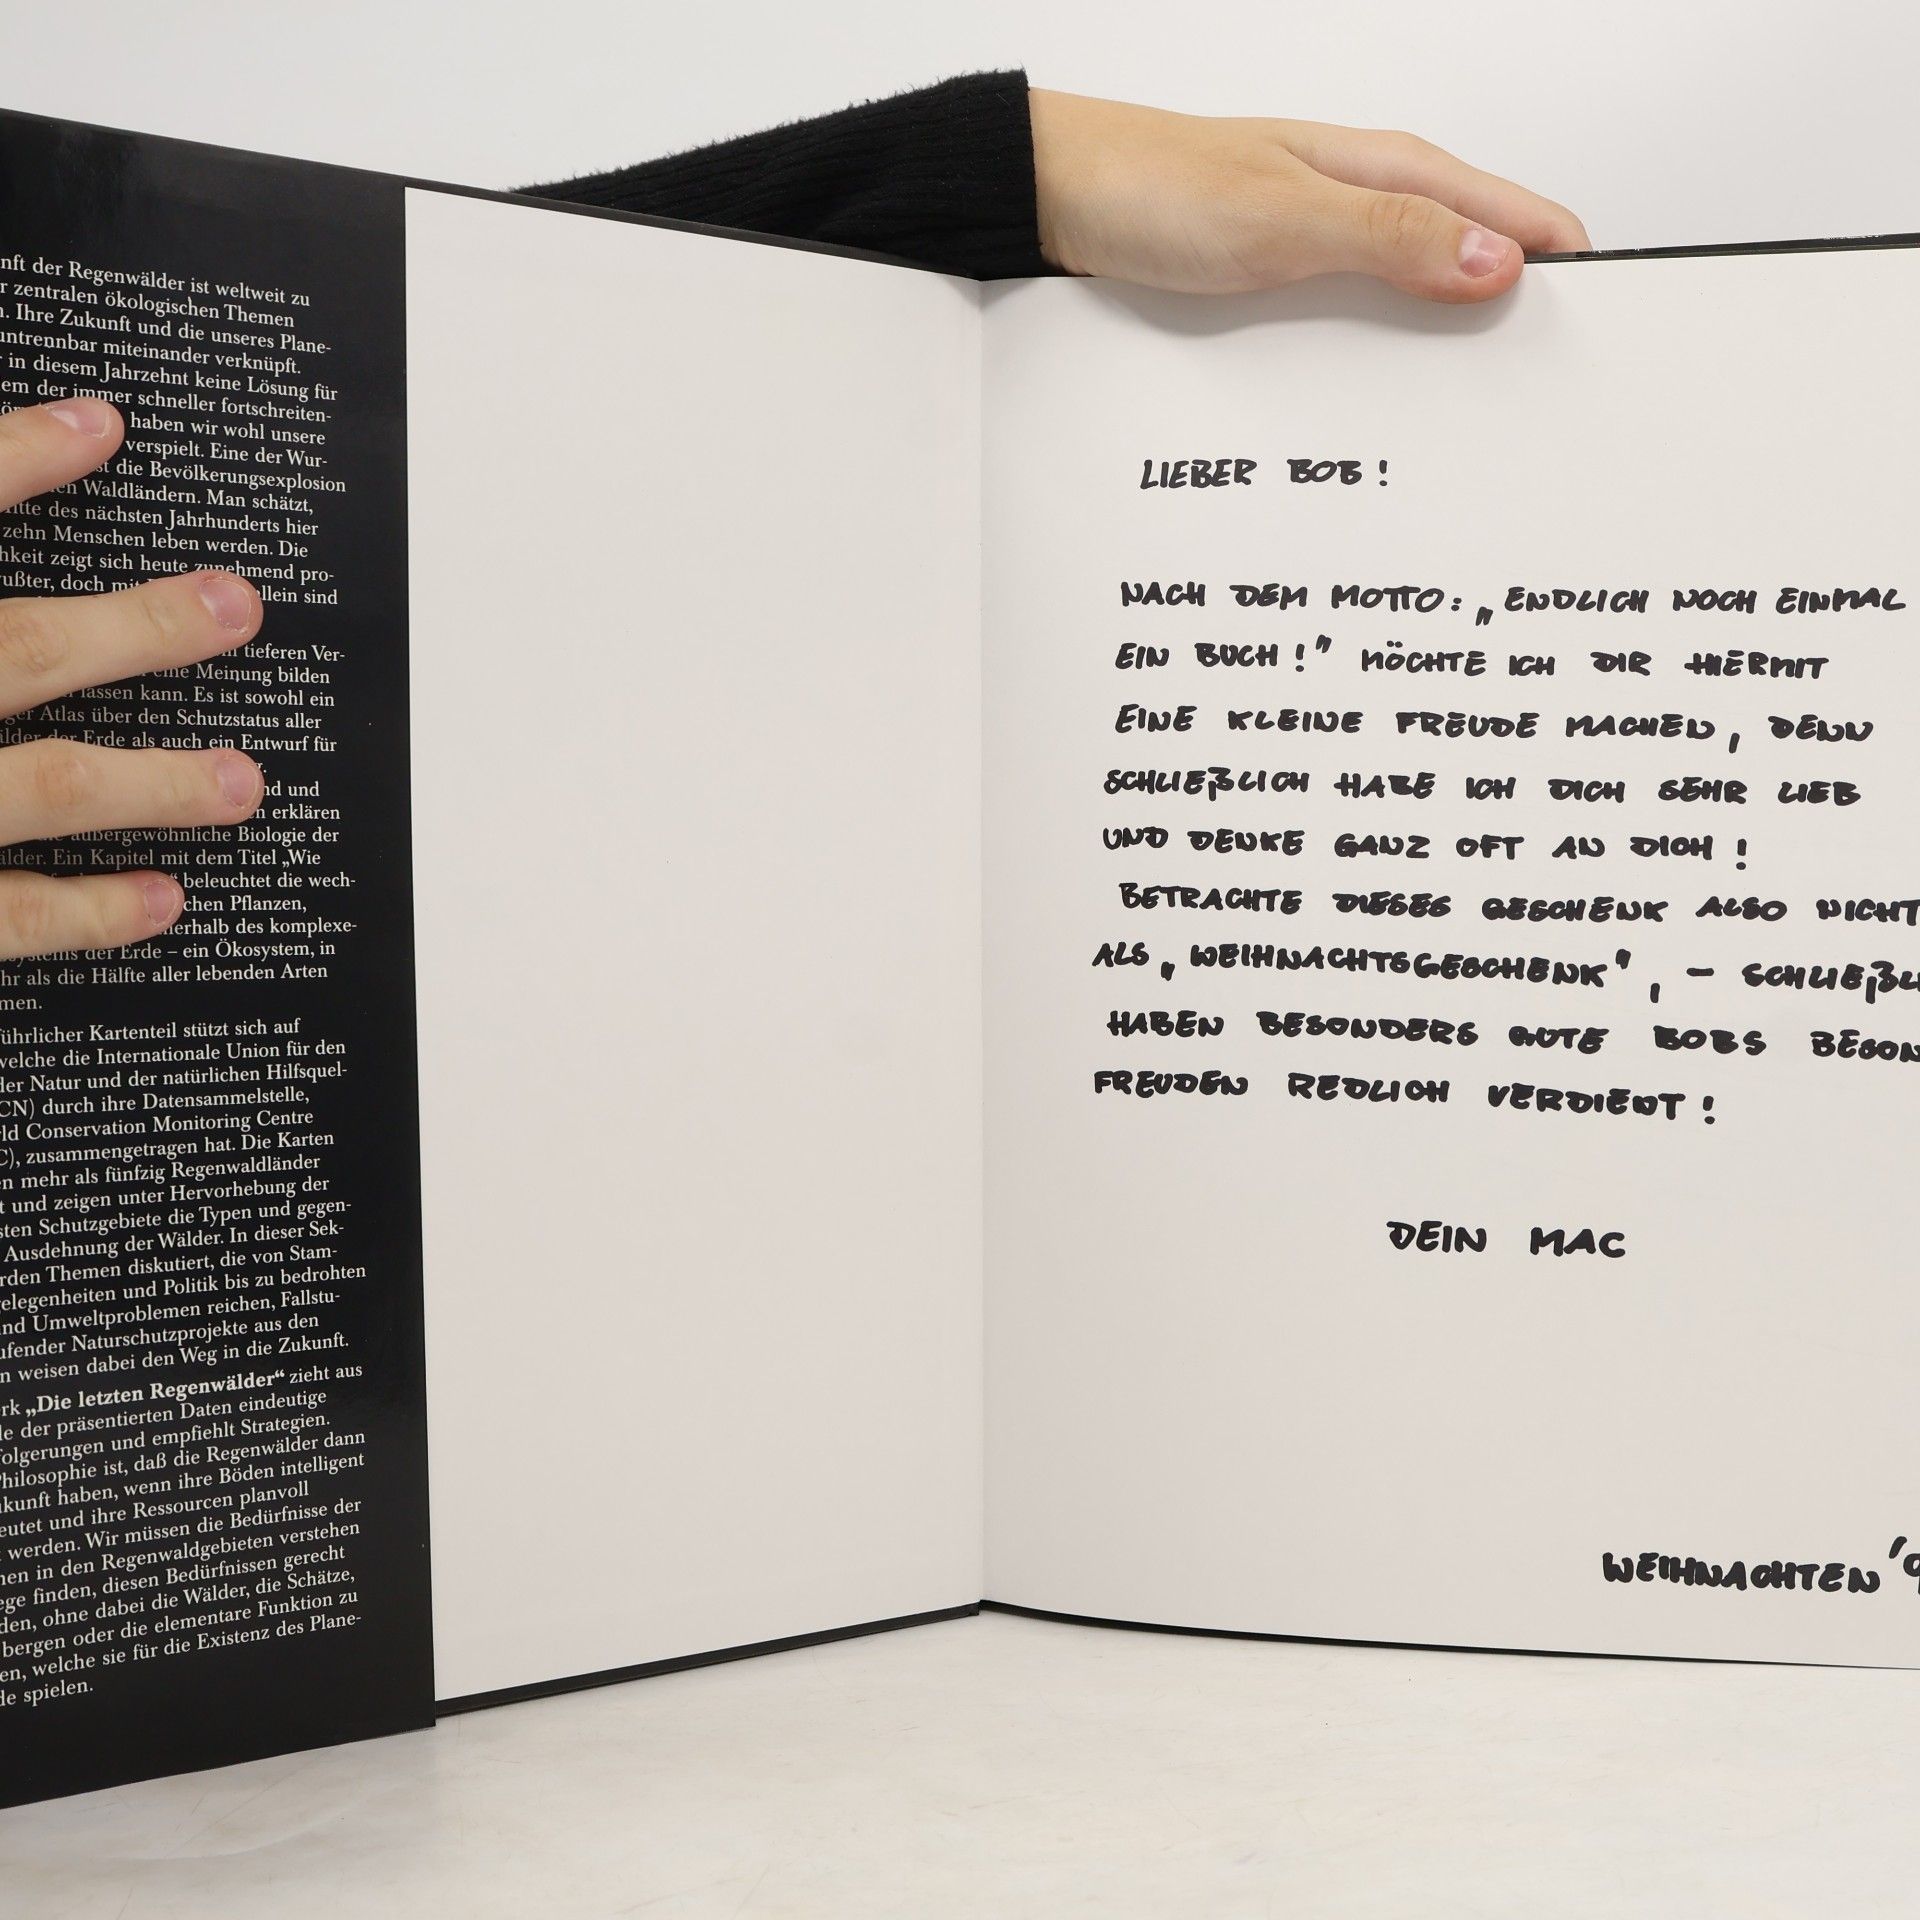 nft der Regenwälder ist weltweit zu
r zentralen ökologischen Themen
. Ihre Zukunft und die unseres Plane-
untrennbar miteinander verknüpft.
in diesem Jahrzehnt keine Lösung für
em der immer schneller fortschreiten-
haben wir wohl unsere
verspielt. Eine der Wur-
st die Bevölkerungsexplosion
en Waldländern. Man schätzt,
itte des nächsten Jahrhunderts hier
zehn Menschen leben werden. Die
hkeit zeigt sich heute zunehmend pro-
ußter, doch mit llein sind
tieferen Ver-
eine Meinung bilden
lassen kann. Es ist sowohl ein
ger Atlas über den Schutzstatus aller
älder der Erde als auch ein Entwurf für
r.
nd und
n erklären
außergewöhnliche Biologie der
älder. Ein Kapitel mit dem Titel „Wie
“ beleuchtet die wech-
chen Pflanzen,
nerhalb des komplexe-
systems der Erde – ein Ökosystem, in
hr als die Hälfte aller lebenden Arten
men.
führlicher Kartenteil stützt sich auf
welche die Internationale Union für den
der Natur und der natürlichen Hilfsquel-
CN) durch ihre Datensammelstelle,
ld Conservation Monitoring Centre
C), zusammengetragen hat. Die Karten
n mehr als fünfzig Regenwaldländer
t und zeigen unter Hervorhebung der
sten Schutzgebiete die Typen und gegen-
Ausdehnung der Wälder. In dieser Sek-
rden Themen diskutiert, die von Stam-
elegenheiten und Politik bis zu bedrohten
nd Umweltproblemen reichen, Fallstu-
ufender Naturschutzprojekte aus den
n weisen dabei den Weg in die Zukunft.
rk „Die letzten Regenwälder“ zieht aus
le der präsentierten Daten eindeutige
folgerungen und empfiehlt Strategien.
Philosophie ist, daß die Regenwälder dann
kunft haben, wenn ihre Böden intelligent
eutet und ihre Ressourcen planvoll
werden. Wir müssen die Bedürfnisse der
nen in den Regenwaldgebieten verstehen
ege finden, diesen Bedürfnissen gerecht
den, ohne dabei die Wälder, die Schätze,
bergen oder die elementare Funktion zu
en, welche sie für die Existenz des Plane-
de spielen.
LIEBER BOB!
NACH DEM MOTTO: „ENDLICH NOCH EINMAL
EIN BUCH!” MÖCHTE ICH DIR HIERMIT
EINE KLEINE FREUDE MACHEN, DENN
SCHLIEßLICH HABE ICH DICH SEHR LIEB
UND DENKE GANZ OFT AN DICH!
BETRACHTE DIESES GESCHENK ALSO NICHT
ALS „WEIHNACHTSGESCHENK”, – SCHLIEßLI
HABEN BESONDERS GUTE BOBS BESON
FREUDEN REDLICH VERDIENT!
DEIN MAC
WEIHNACHTEN '9